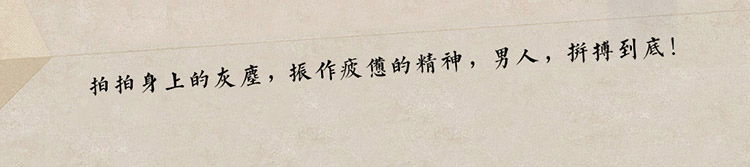 拍拍身上的灰塵，振作疲憊的精神，男人，拼搏到底！